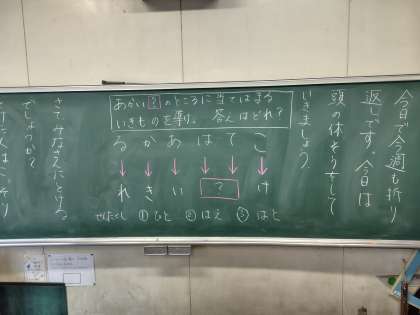 今日で今週も折り
返しです。今日は
頭の体そうをして
いきましょう。
あかい?のところに当てはまる
いきものを 答えはどれ?
る か あ は て こ
れ き い ? け
せんたくし ①ひと ②はえ ③はと
さてみなさんにとける
でしょうか?